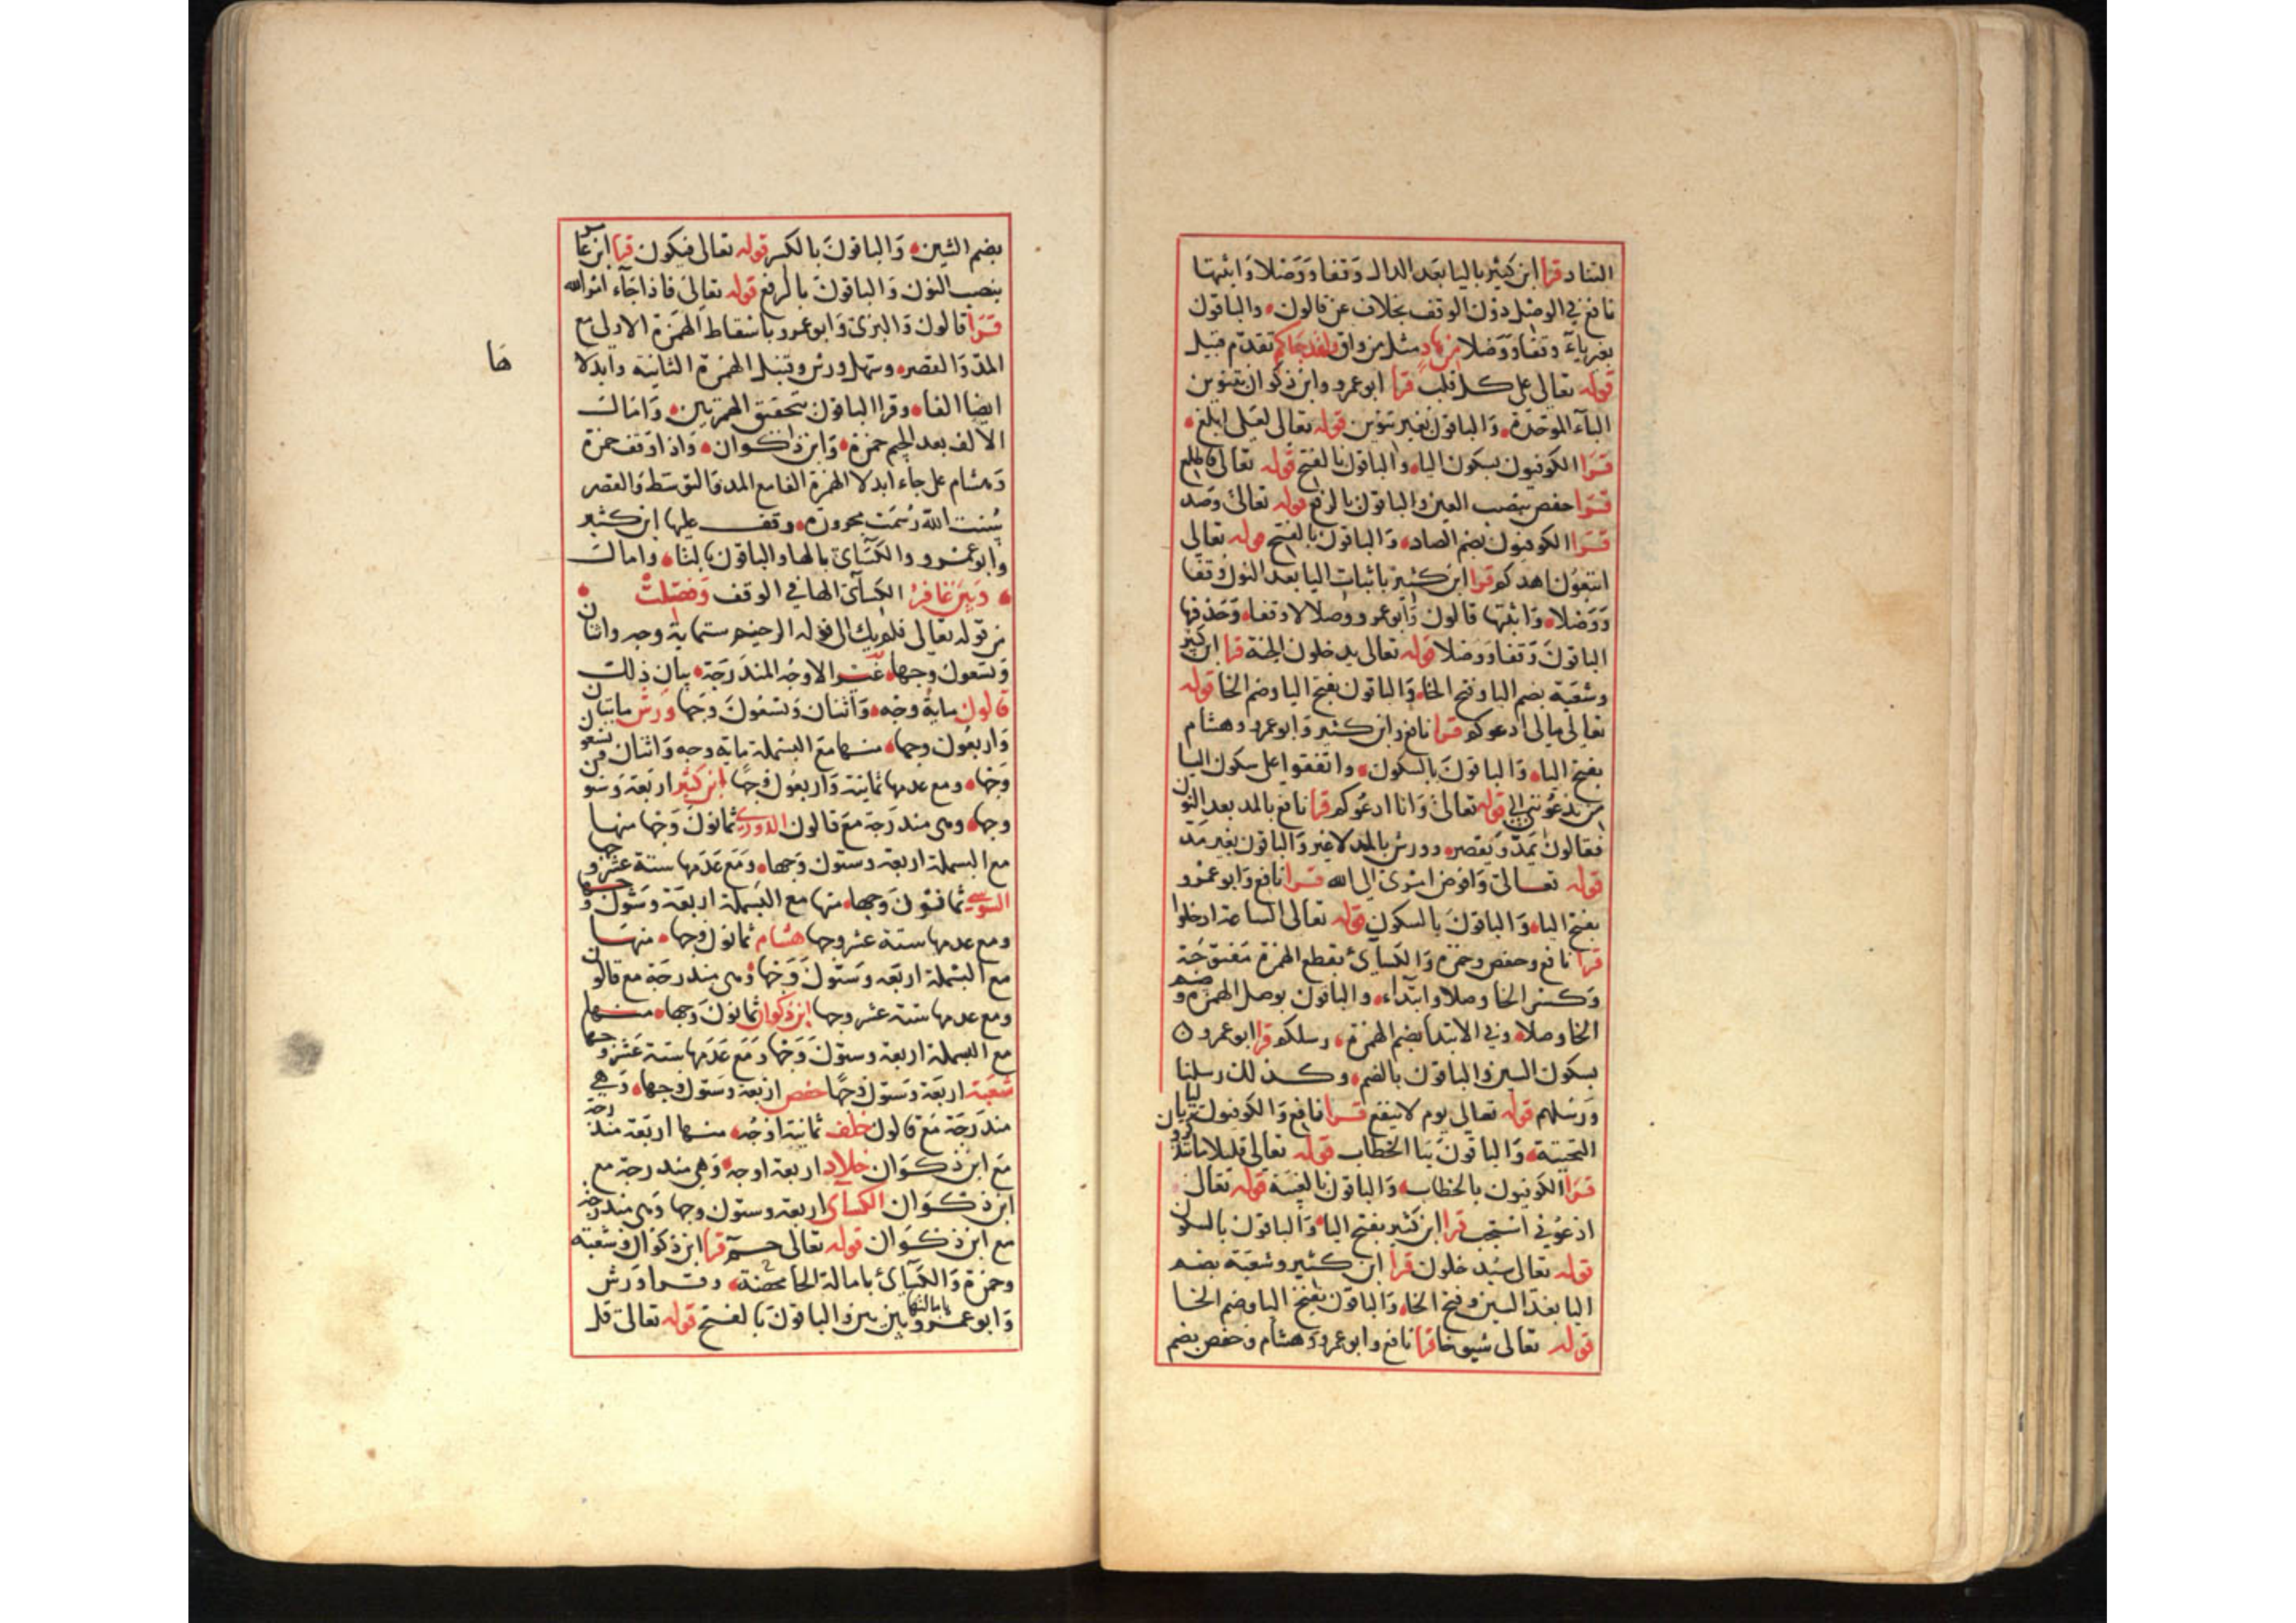 التناد قرا ابن كثير باليا بعد الدال وقفا ووصلا واثبتها
نافع في الوصل دون الوقف بخلاف عن قالون والباقون
بغير ياء وقفا ووصلا من هاد مثل من واق ولقد جاكم تقدم قبيل
قوله تعالى على كل قلب قرا ابو عمرو وابن ذكوان بتنوين
الباء الموحدة والباقون بغير تنوين قوله تعالى لعلى ابلغ
قرا الكوفيون بسكون اليا والباقون بالفتح قوله تعالى فاطلع
قرا حفص بنصب العين والباقون بالرفع قوله تعالى وصد
قرا الكوفيون بضم الصاد والباقون بالفتح قوله تعالى
اتبعون اهدكم قرا ابن كثير باثبات اليا بعد النون وقفا
ووصلا واثبتها قالون وابو عمرو وصلا لا وقفا وحذفها
الباقون وقفا ووصلا قوله تعالى يدخلون الجنة قرا ابن كثير
وشعبة بضم اليا وفتح الخا والباقون بفتح اليا وضم الخا قوله
تعالى مالى ادعوكم قرا نافع وابن كثير وابو عمرو وهشام
بفتح اليا والباقون بالسكون واتفقوا على سكون اليا
من تدعوننى الى قوله تعالى وانا ادعوكم قرا نافع بالمد بعد النون
فقالون يمد ويقصر وورش بالمد لا غير والباقون بغير مد
قوله تعالى وافوض امرى الى الله قرا نافع وابو عمرو
بفتح اليا والباقون بالسكون قوله تعالى الساعة ادخلوا
قرا نافع وحفص وحمزة والكسائ بقطع الهمزة مفتوحة
وكسر الخا وصلا وابتداء والباقون بوصل الهمزة وضم
الخا وصلا وفي الابتدا بضم الهمزة رسلكم قرا ابو عمرو
بسكون السين والباقون بالضم وكذلك رسلنا
ورسلهم قوله تعالى يوم لا ينفع قرا نافع والكوفيون باليا
التحتية والباقون بتا الخطاب قوله تعالى قليلا ما تتذكرون
قرا الكوفيون بالخطاب والباقون بالغيبة قوله تعالى
ادعوني استجب قرا ابن كثير بفتح اليا والباقون بالسكون
قوله تعالى سيدخلون قرا ابن كثير وشعبة بضم
اليا بعد السين وفتح الخا والباقون بفتح اليا وضم الخا
قوله تعالى شيوخا قرا نافع وابو عمرو وهشام وحفص بضم
بضم الشين والباقون بالكسر قوله تعالى فيكون قرا ابن عامر
بنصب النون والباقون بالرفع قوله تعالى فاذا جاء امر الله
قرا قالون والبزى وابو عمرو باسقاط الهمزة الاولى مع
المد والقصر وسهل ورش وقنبل الهمزة الثانية وابدلا
ها
ايضا الفا وقرا الباقون بتحقيق الهمزتين وامال
الالف بعد الجيم حمزة وابن ذكوان واذا وقف حمزة
وهشام على جاء ابدلا الهمزة الفا مع المد والتوسط والقصر
سنت الله رسمت مجرورة وقف عليها ابن كثير
وابو عمرو والكسائ بالها والباقون بالتا وامال
الكسائ الها في الوقف وفصلت وبين غافر
من قوله تعالى فلم يك الى قوله الرحيم ستماية وجه واثنان
وتسعون وجها غير الاوجه المندرجة بيان ذلك
قالون ماية وجه واثنان وتسعون وجها ورش مايتان
واربعون وجها منها مع البسملة ماية وجه واثنان وتسعون
وجها ومع عدمها ثمانية واربعون وجها ابن كثير اربعة وستون
وجها وهى مندرجة مع قالون الدوري ثمانون وجها منها
مع البسملة اربعة وستون وجها ومع عدمها ستة عشر وجها
السوسي ثمانون وجها منها مع البسملة اربعة وستون وجها
ومع عدمها ستة عشر وجها هشام ثمانون وجها منها
مع البسملة اربعة وستون وجها وهى مندرجة مع قالون
ومع عدمها ستة عشر وجها ابن ذكوان ثمانون وجها منها
مع البسملة اربعة وستون وجها ومع عدمها ستة عشر وجها
شعبة اربعة وستون وجها حفص اربعة وستون وجها وهي
مندرجة مع قالون خلف ثمانية اوجه منها اربعة مندرجة
مع ابن ذكوان خلاد اربعة اوجه وهي مندرجة مع
ابن ذكوان الكسائ اربعة وستون وجها وهى مندرجة
مع ابن ذكوان قوله تعالى حم قرا ابن ذكوان وشعبة
وحمزة والكسائ بامالة الحا محضة وقرا ورش
وابو عمرو بامالتها بين بين والباقون بالفتح قوله تعالى قل